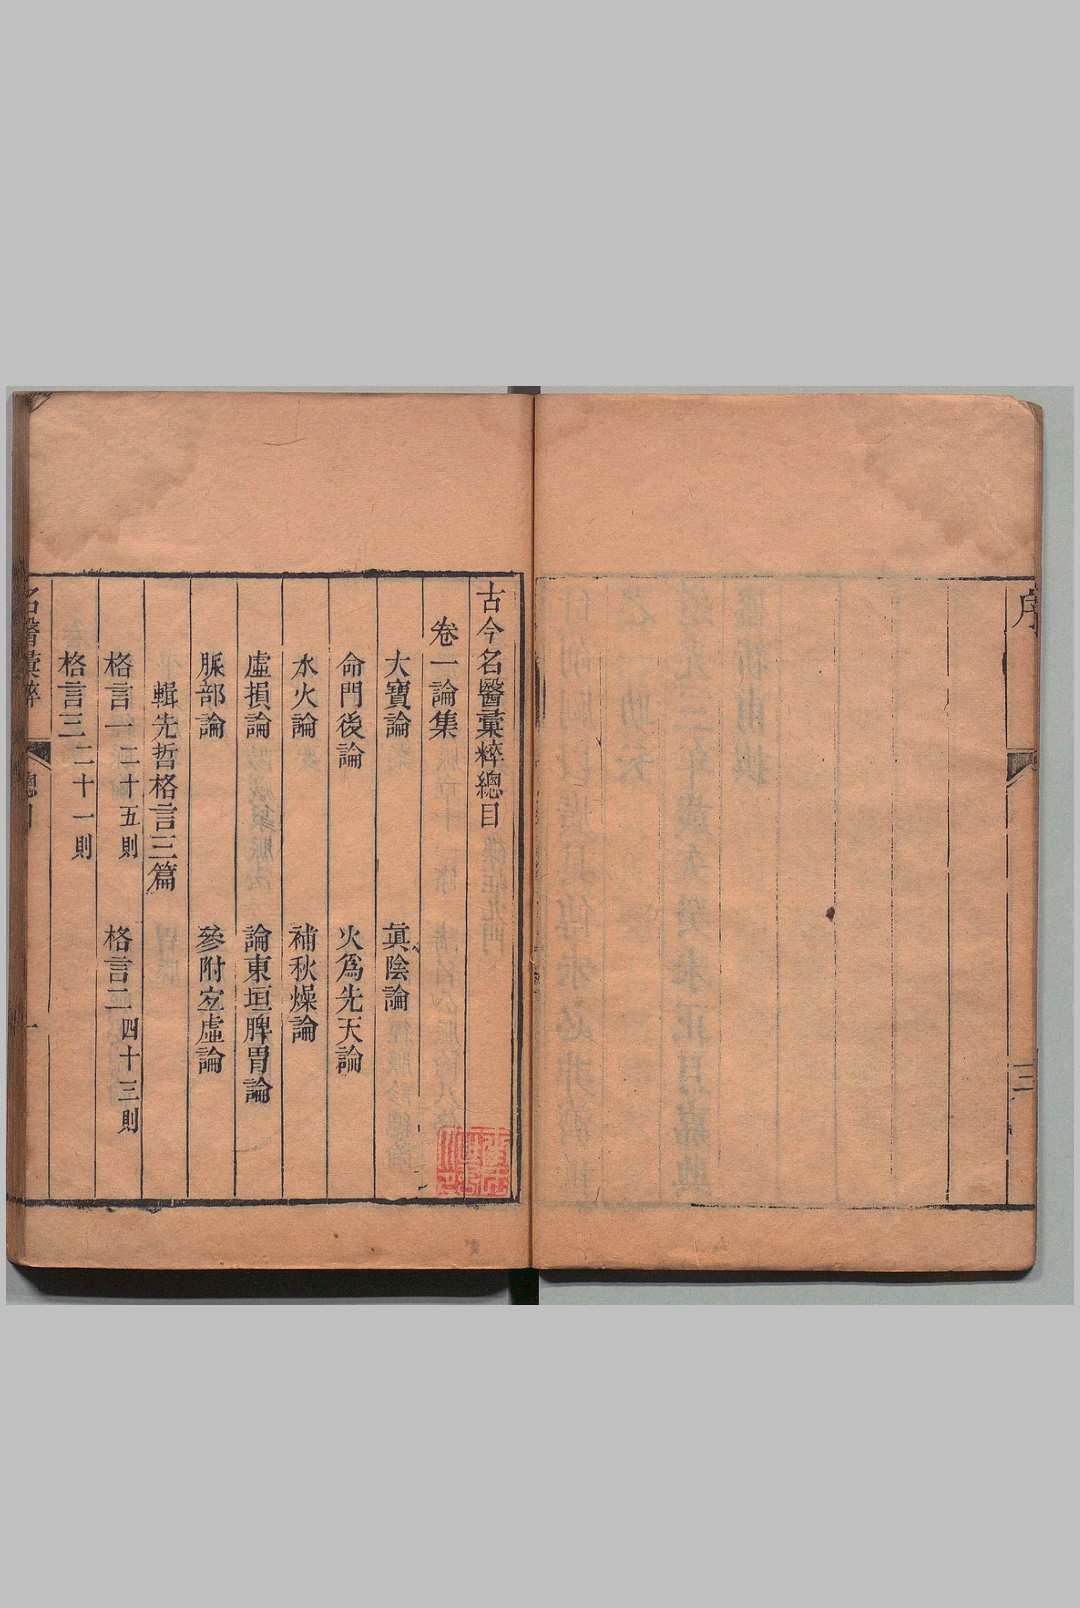 序
三
古今名醫彙粹總目
卷一論集
大寶論　眞陰論
命門後論　火爲先天論
水火論　補秋燥論
虛損論　論東垣脾胃論
脈部論　參附宜虛論
輯先哲格言三篇
格言一二十五則　格言二四十三則
格言三二十一則
名醫彙粹　總目　一